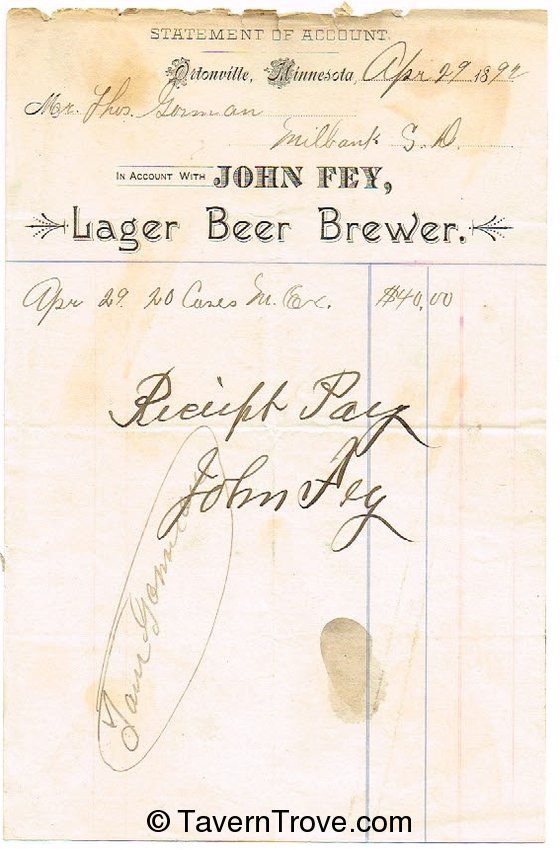 STATEMENT OF ACCOUNT.
Ortonville, Minnesota, Apr 29 1892
Mr. Thos. Gorman
Milbank S. D.
IN ACCOUNT WITH JOHN FEY,
Lager Beer Brewer.
Apr 29. 20 Cases M. Ex. $40,00
Receipt Pay
John Fey
© TavernTrove.com